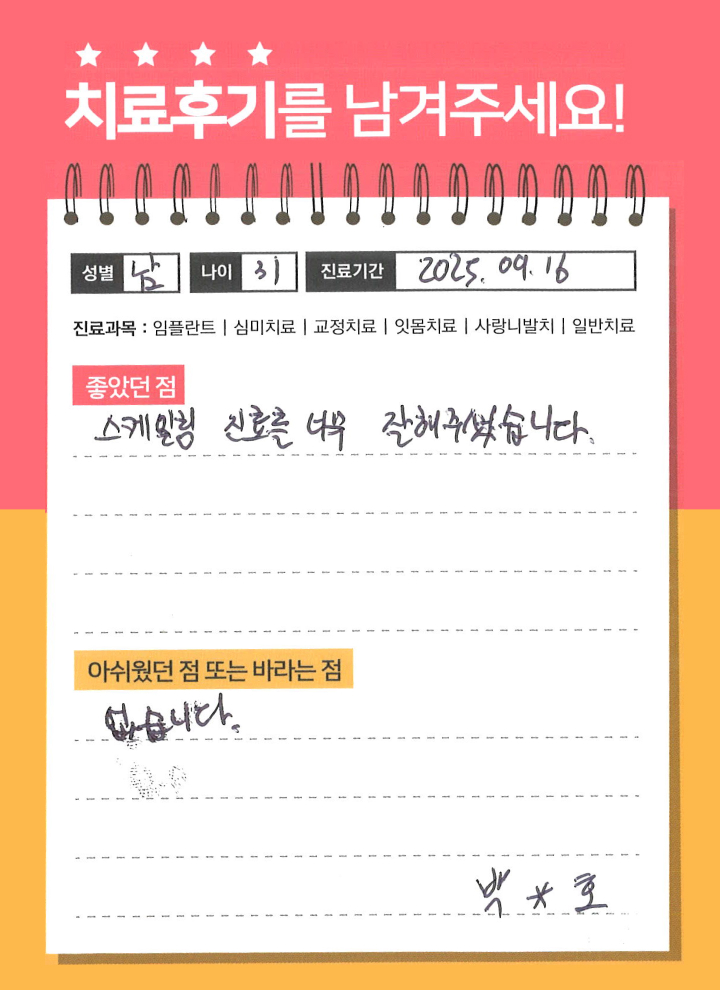 치료후기를 남겨주세요!
성별 남 나이 31 진료기간 2025. 09. 16
진료과목 : 임플란트 | 심미치료 | 교정치료 | 잇몸치료 | 사랑니발치 | 일반치료
좋았던 점
스케일링 진료를 너무 잘해주셨습니다.
아쉬웠던 점 또는 바라는 점
없습니다.
박 * 호